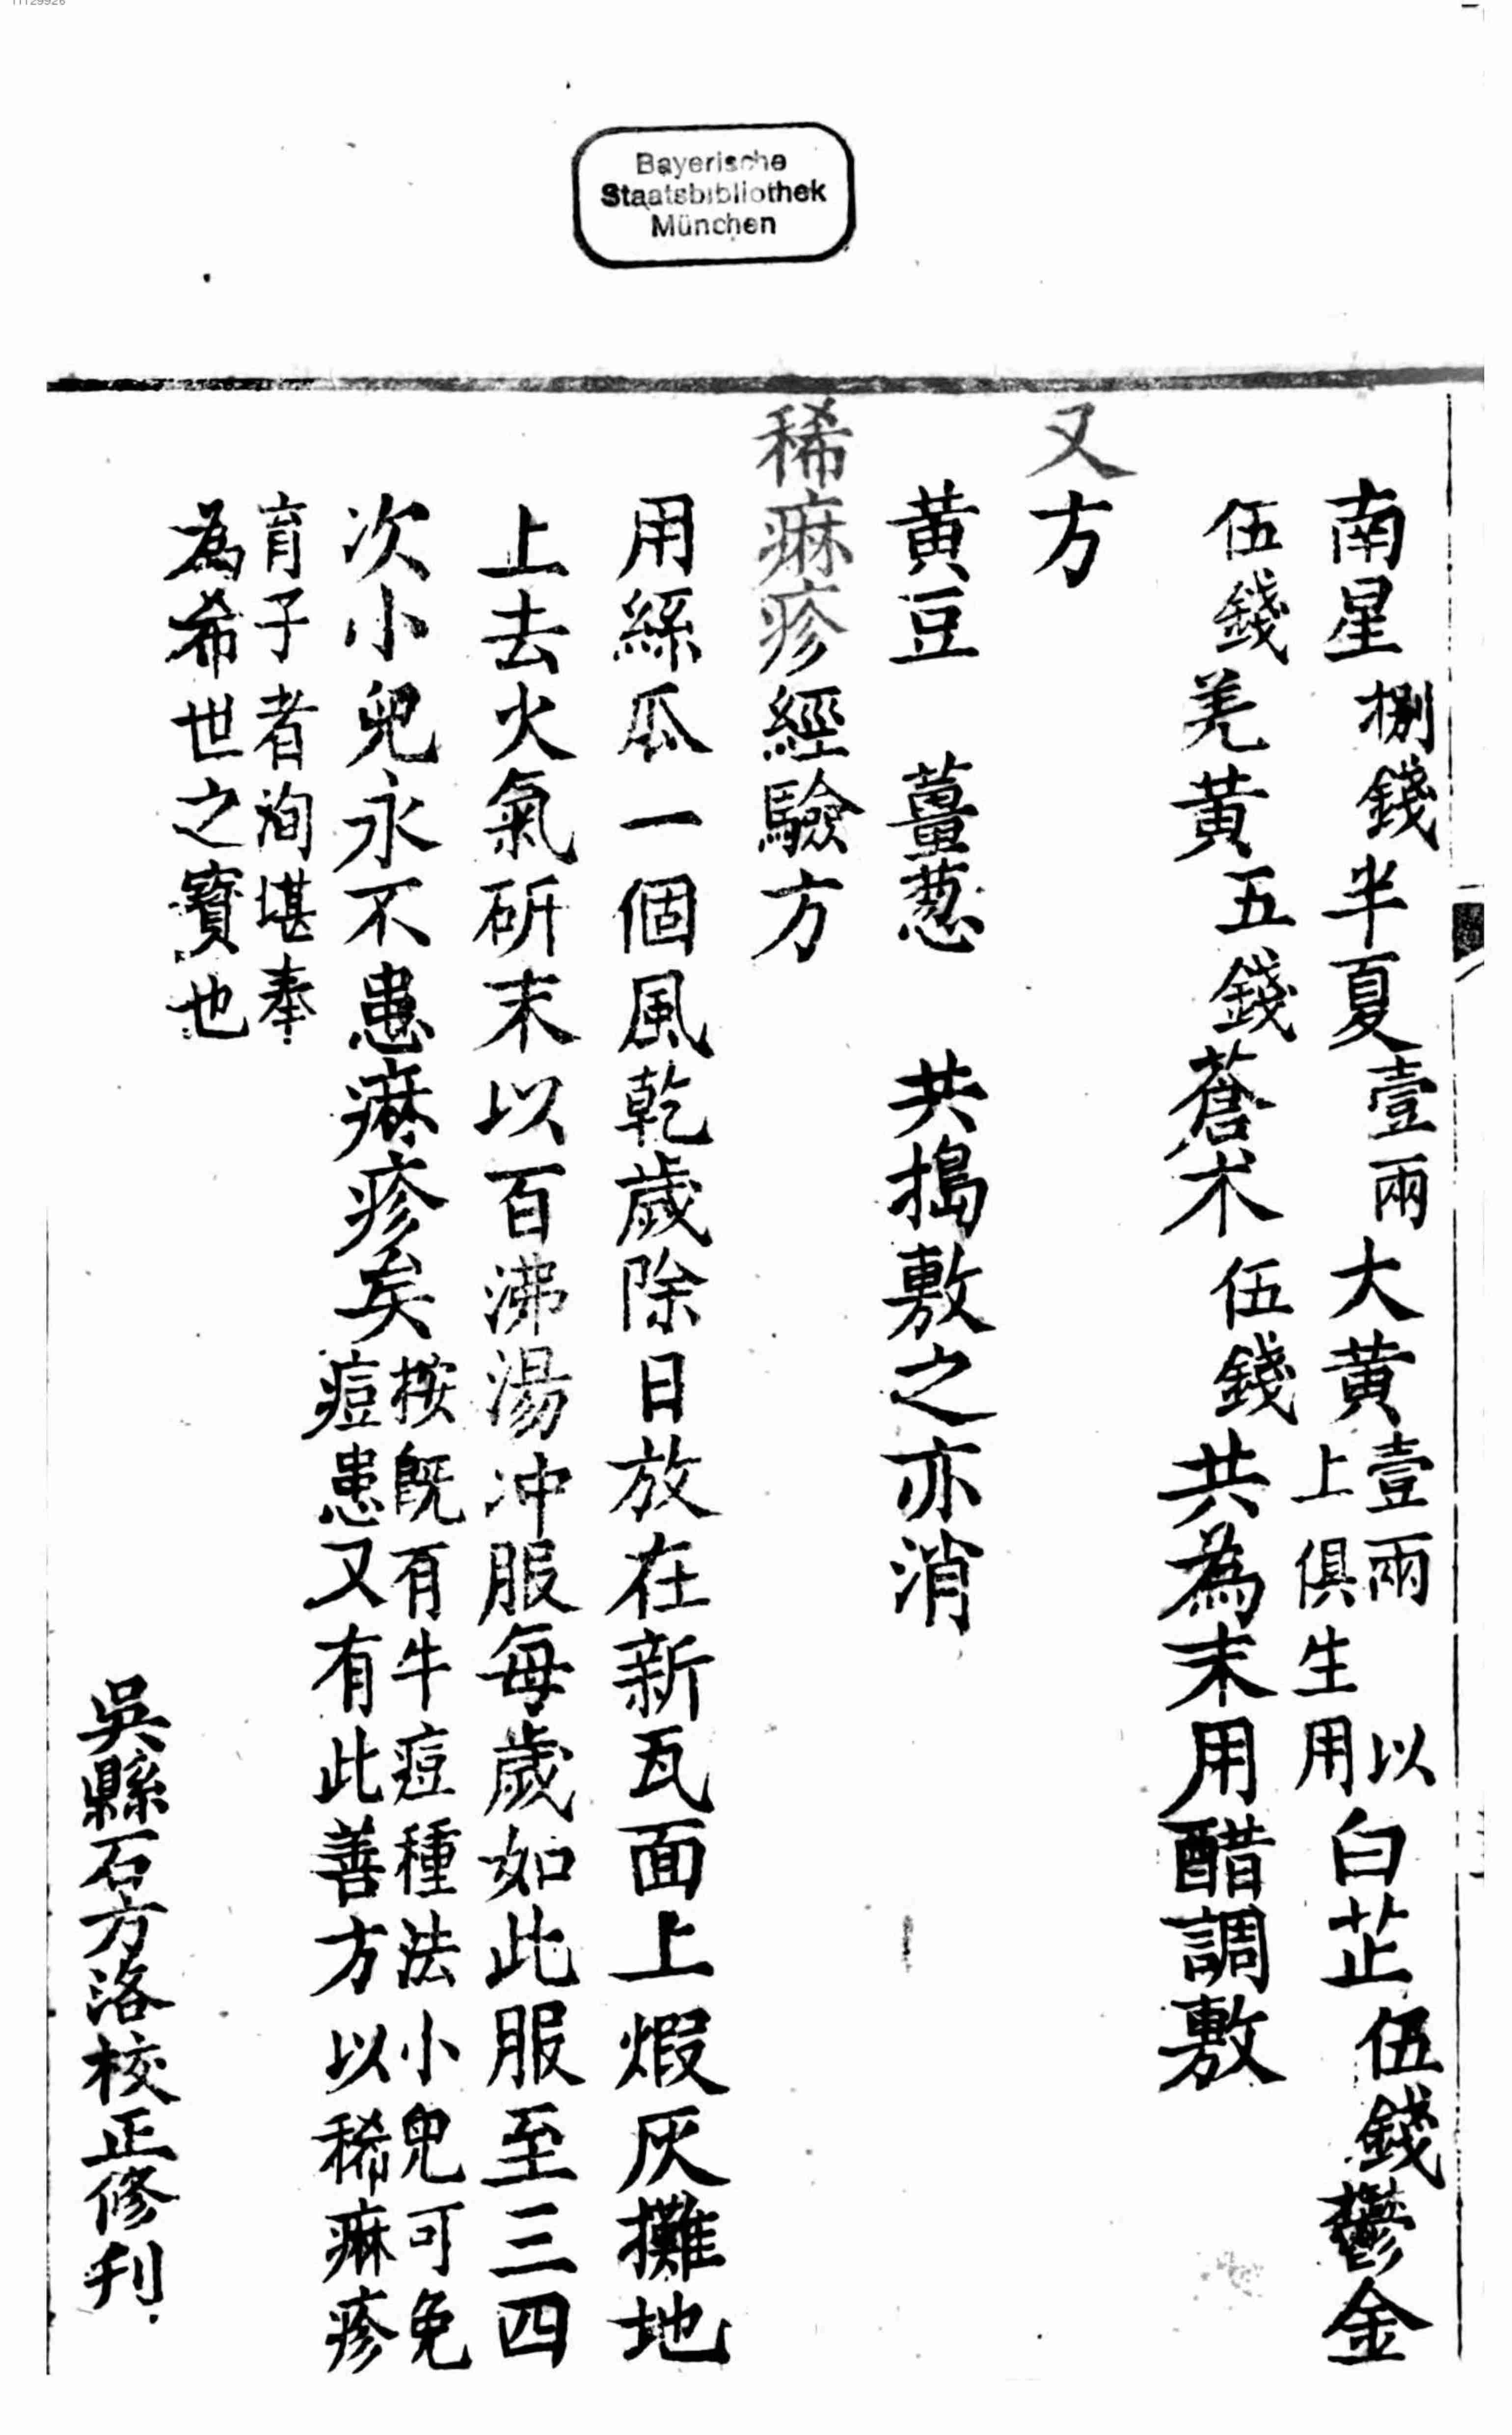 11129926
Bayerische
Staatsbibliothek
München
南星捌錢半夏壹兩大黃壹兩以上俱生用白芷伍錢鬱金
伍錢羌黃五錢蒼朮伍錢共為末用醋調敷
又方
黃豆 薑葱 共搗敷之亦消
稀痲疹經驗方
用絲瓜一個風乾歲除日放在新瓦面上煆灰攤地
上去火氣研末以百沸湯冲服每歲如此服至三四
次小兒永不患痲疹矣按既有牛痘種法小兒可免痘患又有此善方以稀痲疹
育子者洵堪奉為希世之寶也
吳縣石方洛校正修刋